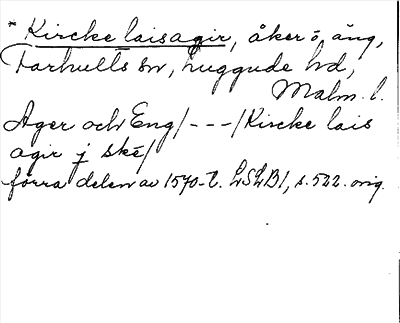 * Kircke laisagir, åker o. äng,
Farhults sn, Luggude hd,
Malm. l.
Ager och Eng/---/Kircke lais
agir j ske/
förra delen av 1570-t. LSLB1, s. 522. orig.